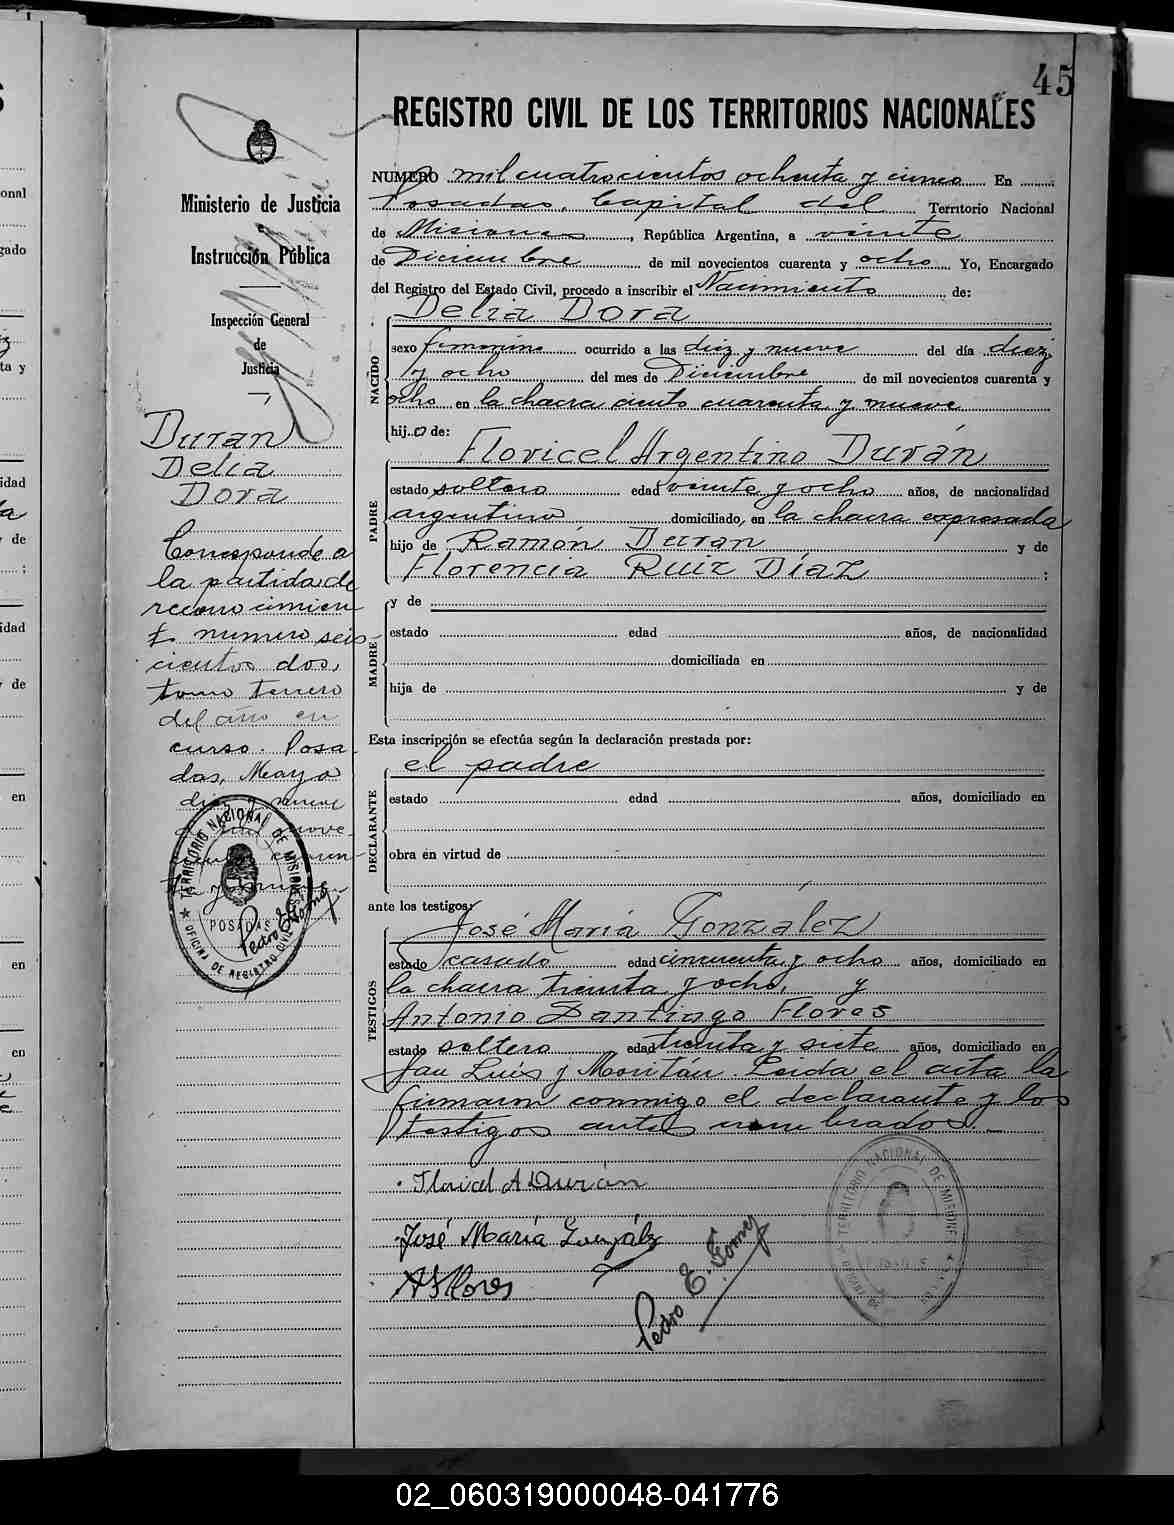 45
REGISTRO CIVIL DE LOS TERRITORIOS NACIONALES
Ministerio de Justicia
e
Instrucción Pública
Inspección General
de
Justicia
Duran
Delia
Dora
Corresponde a
la partida de
reconocimien
to numero seis
cientos dos,
tomo tercero
del año en
curso. Posa
das, Mayo
diez y nueve
de mil nove
cientos cuaren
ta y
TERRITORIO NACIONAL DE MISIONES
POSADAS
OFICINA DE REGISTRO CIVIL
Pedro E. Gomez
NUMERO mil cuatrocientos ochenta y cinco En
Posadas, Capital del Territorio Nacional
de Misiones, República Argentina, a veinte
de Diciembre de mil novecientos cuarenta y ocho Yo, Encargado
del Registro del Estado Civil, procedo a inscribir el Nacimiento de:
NACIDO
Delia Dora
sexo femenino ocurrido a las diez y nueve del día diez
y ocho del mes de Diciembre de mil novecientos cuarenta y
ocho en la chacra ciento cuarenta y nueve
hij a de:
PADRE
Floricel Argentino Durán
estado soltero edad veinte y ocho años, de nacionalidad
argentino domiciliado, en la chacra expresada
hijo de Ramón Duran y de
Florencia Ruiz Díaz ;
MADRE
y de
estado edad años, de nacionalidad
domiciliada en
hija de y de
Esta inscripción se efectúa según la declaración prestada por:
DECLARANTE
el padre
estado edad años, domiciliado en
obra en virtud de
ante los testigos:
TESTIGOS
José María Gonzalez
estado casado edad cincuenta y ocho años, domiciliado en
la chacra treinta y ocho, y
Antonio Santiago Flores
estado soltero edad treinta y siete años, domiciliado en
San Luis y Moritán. Leida el acta la
firmaron conmigo el declarante y los
testigos antes nombrados.
Floricel A Durán
José María Gonzálz
A S Flores
Pedro E. Gomez
TERRITORIO NACIONAL DE MISIONES
02_060319000048-041776